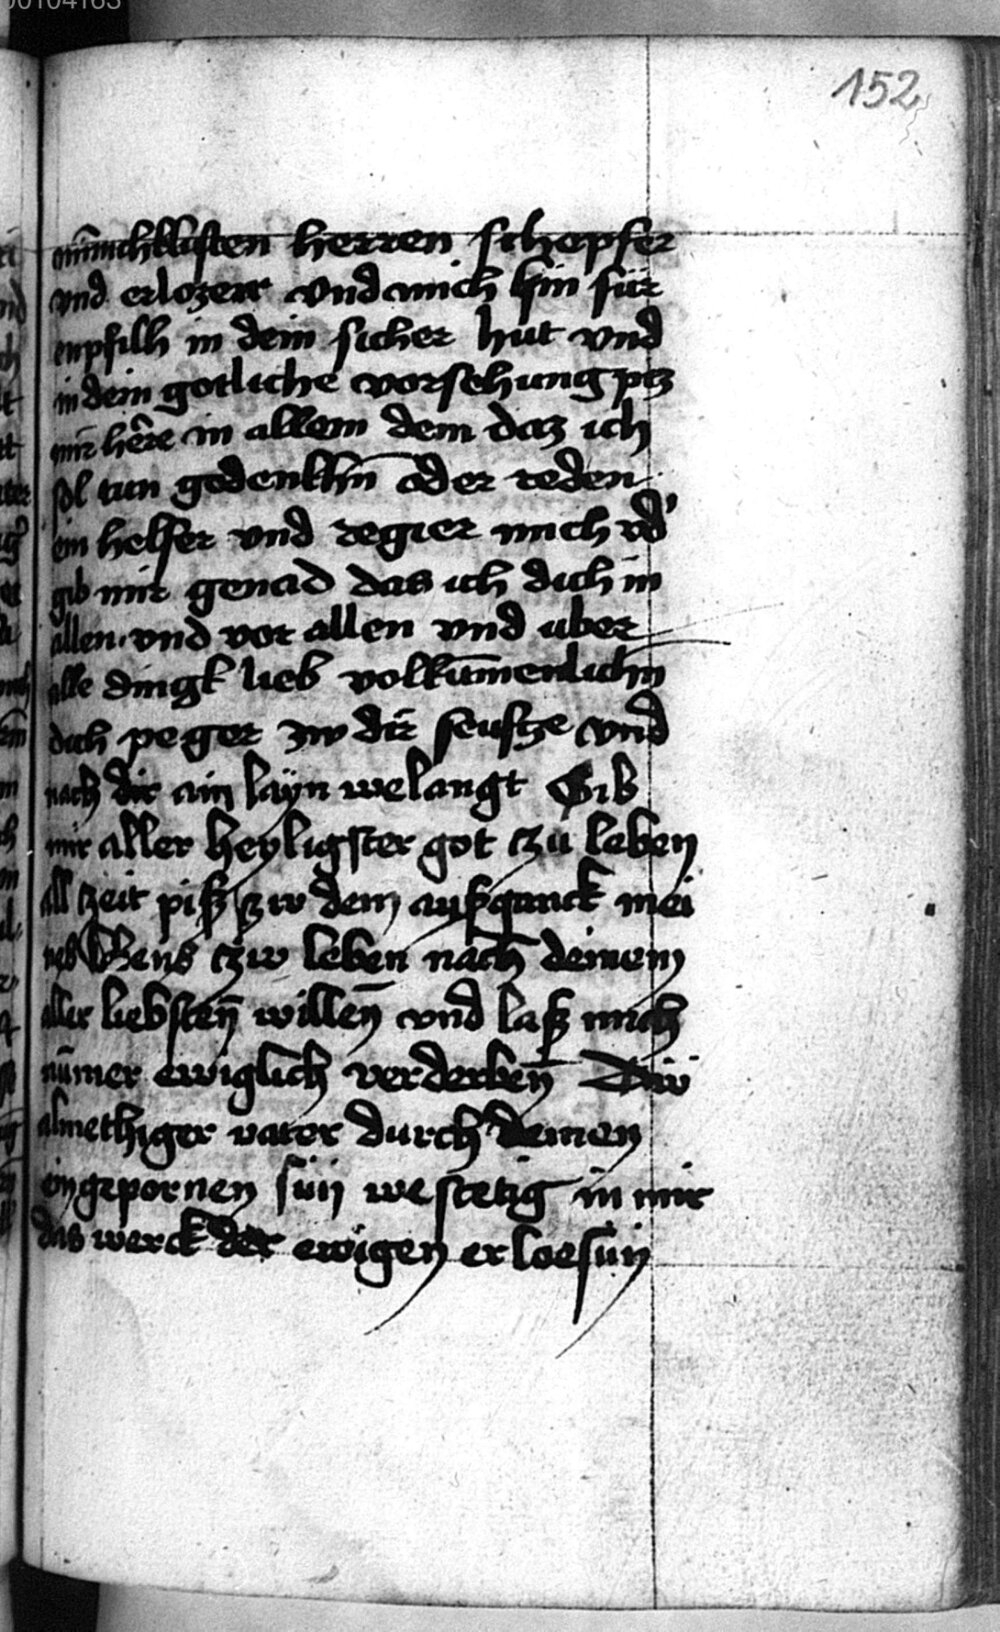 00104163
152
herren schepfer
vnd erlozerr vnd mich hin für
enpfilh in dein sicher hut vnd
in dein gotliche vorsehung piz
mir h̄ere in allem dem daz ich
sol tun gedenkhn̄ oder reden
ein helfer vnd regier mich vd'
gib mir genad das ich dich in
allen vnd vor allen vnd uber
alle dingk lieb volkūmenlichn
dich peger zw dir seuftze vnd
nach dir ain layn welangt Gib
mir aller heyligster got tzu leben
all tzeit pisz tzw dem auszganck mei
nes lebens tzw leben nach deinem
aller liebsten̄ willen̄ vnd lasz mich
nūmer ewiglich verderben̄ Dw
almethiger vater durch deinen
eingepornen sün westetig in mir
das werck der ewigen erloesun